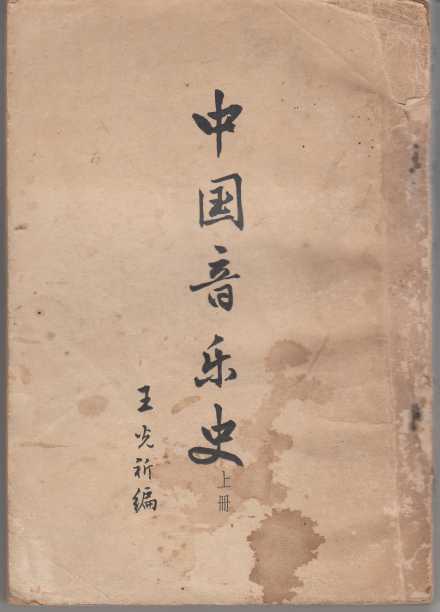 中国音乐史
上册
王光祈编